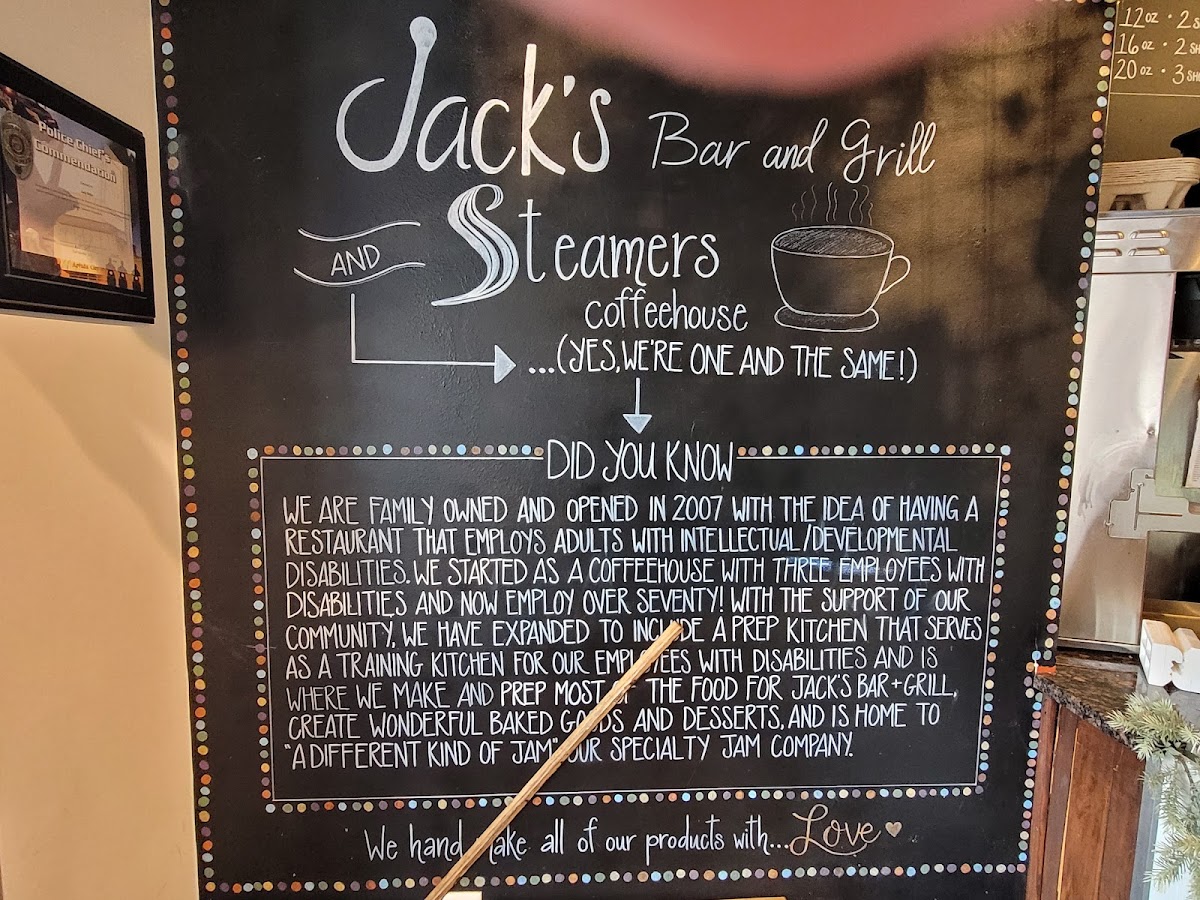 Jack's Bar and Grill
AND Steamers
coffeehouse
...(YES, WE'RE ONE AND THE SAME!)
DID YOU KNOW
WE ARE FAMILY OWNED AND OPENED IN 2007 WITH THE IDEA OF HAVING A
RESTAURANT THAT EMPLOYS ADULTS WITH INTELLECTUAL/DEVELOPMENTAL
DISABILITIES. WE STARTED AS A COFFEEHOUSE WITH THREE EMPLOYEES WITH
DISABILITIES AND NOW EMPLOY OVER SEVENTY! WITH THE SUPPORT OF OUR
COMMUNITY, WE HAVE EXPANDED TO INCLUDE A PREP KITCHEN THAT SERVES
AS A TRAINING KITCHEN FOR OUR EMPLOYEES WITH DISABILITIES AND IS
WHERE WE MAKE AND PREP MOST OF THE FOOD FOR JACK'S BAR + GRILL,
CREATE WONDERFUL BAKED GOODS AND DESSERTS, AND IS HOME TO
"A DIFFERENT KIND OF JAM" OUR SPECIALTY JAM COMPANY.
We hand make all of our products with...Love
Police Chief's
Commendation
12oz · 2
16oz · 2
20oz · 3